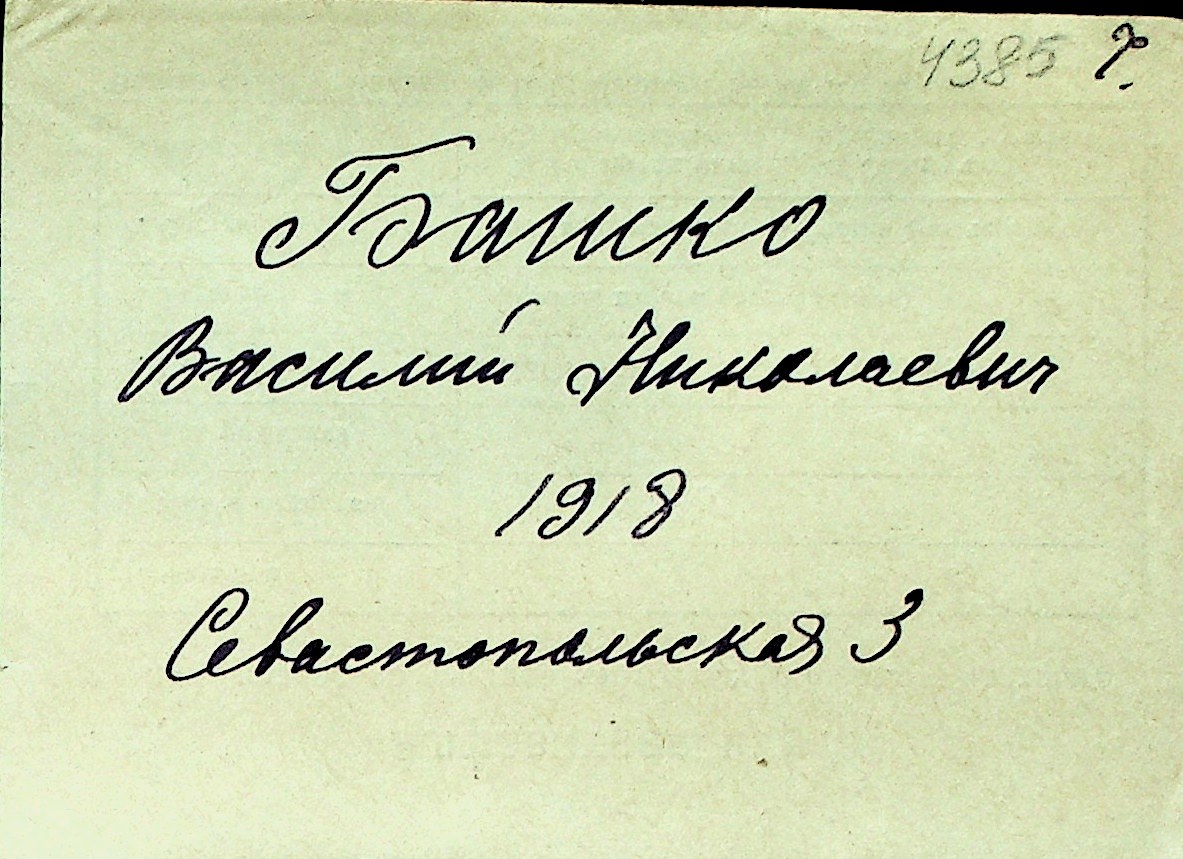 4385
Башко
Василий Николаевич
1918
Севастопольская 3